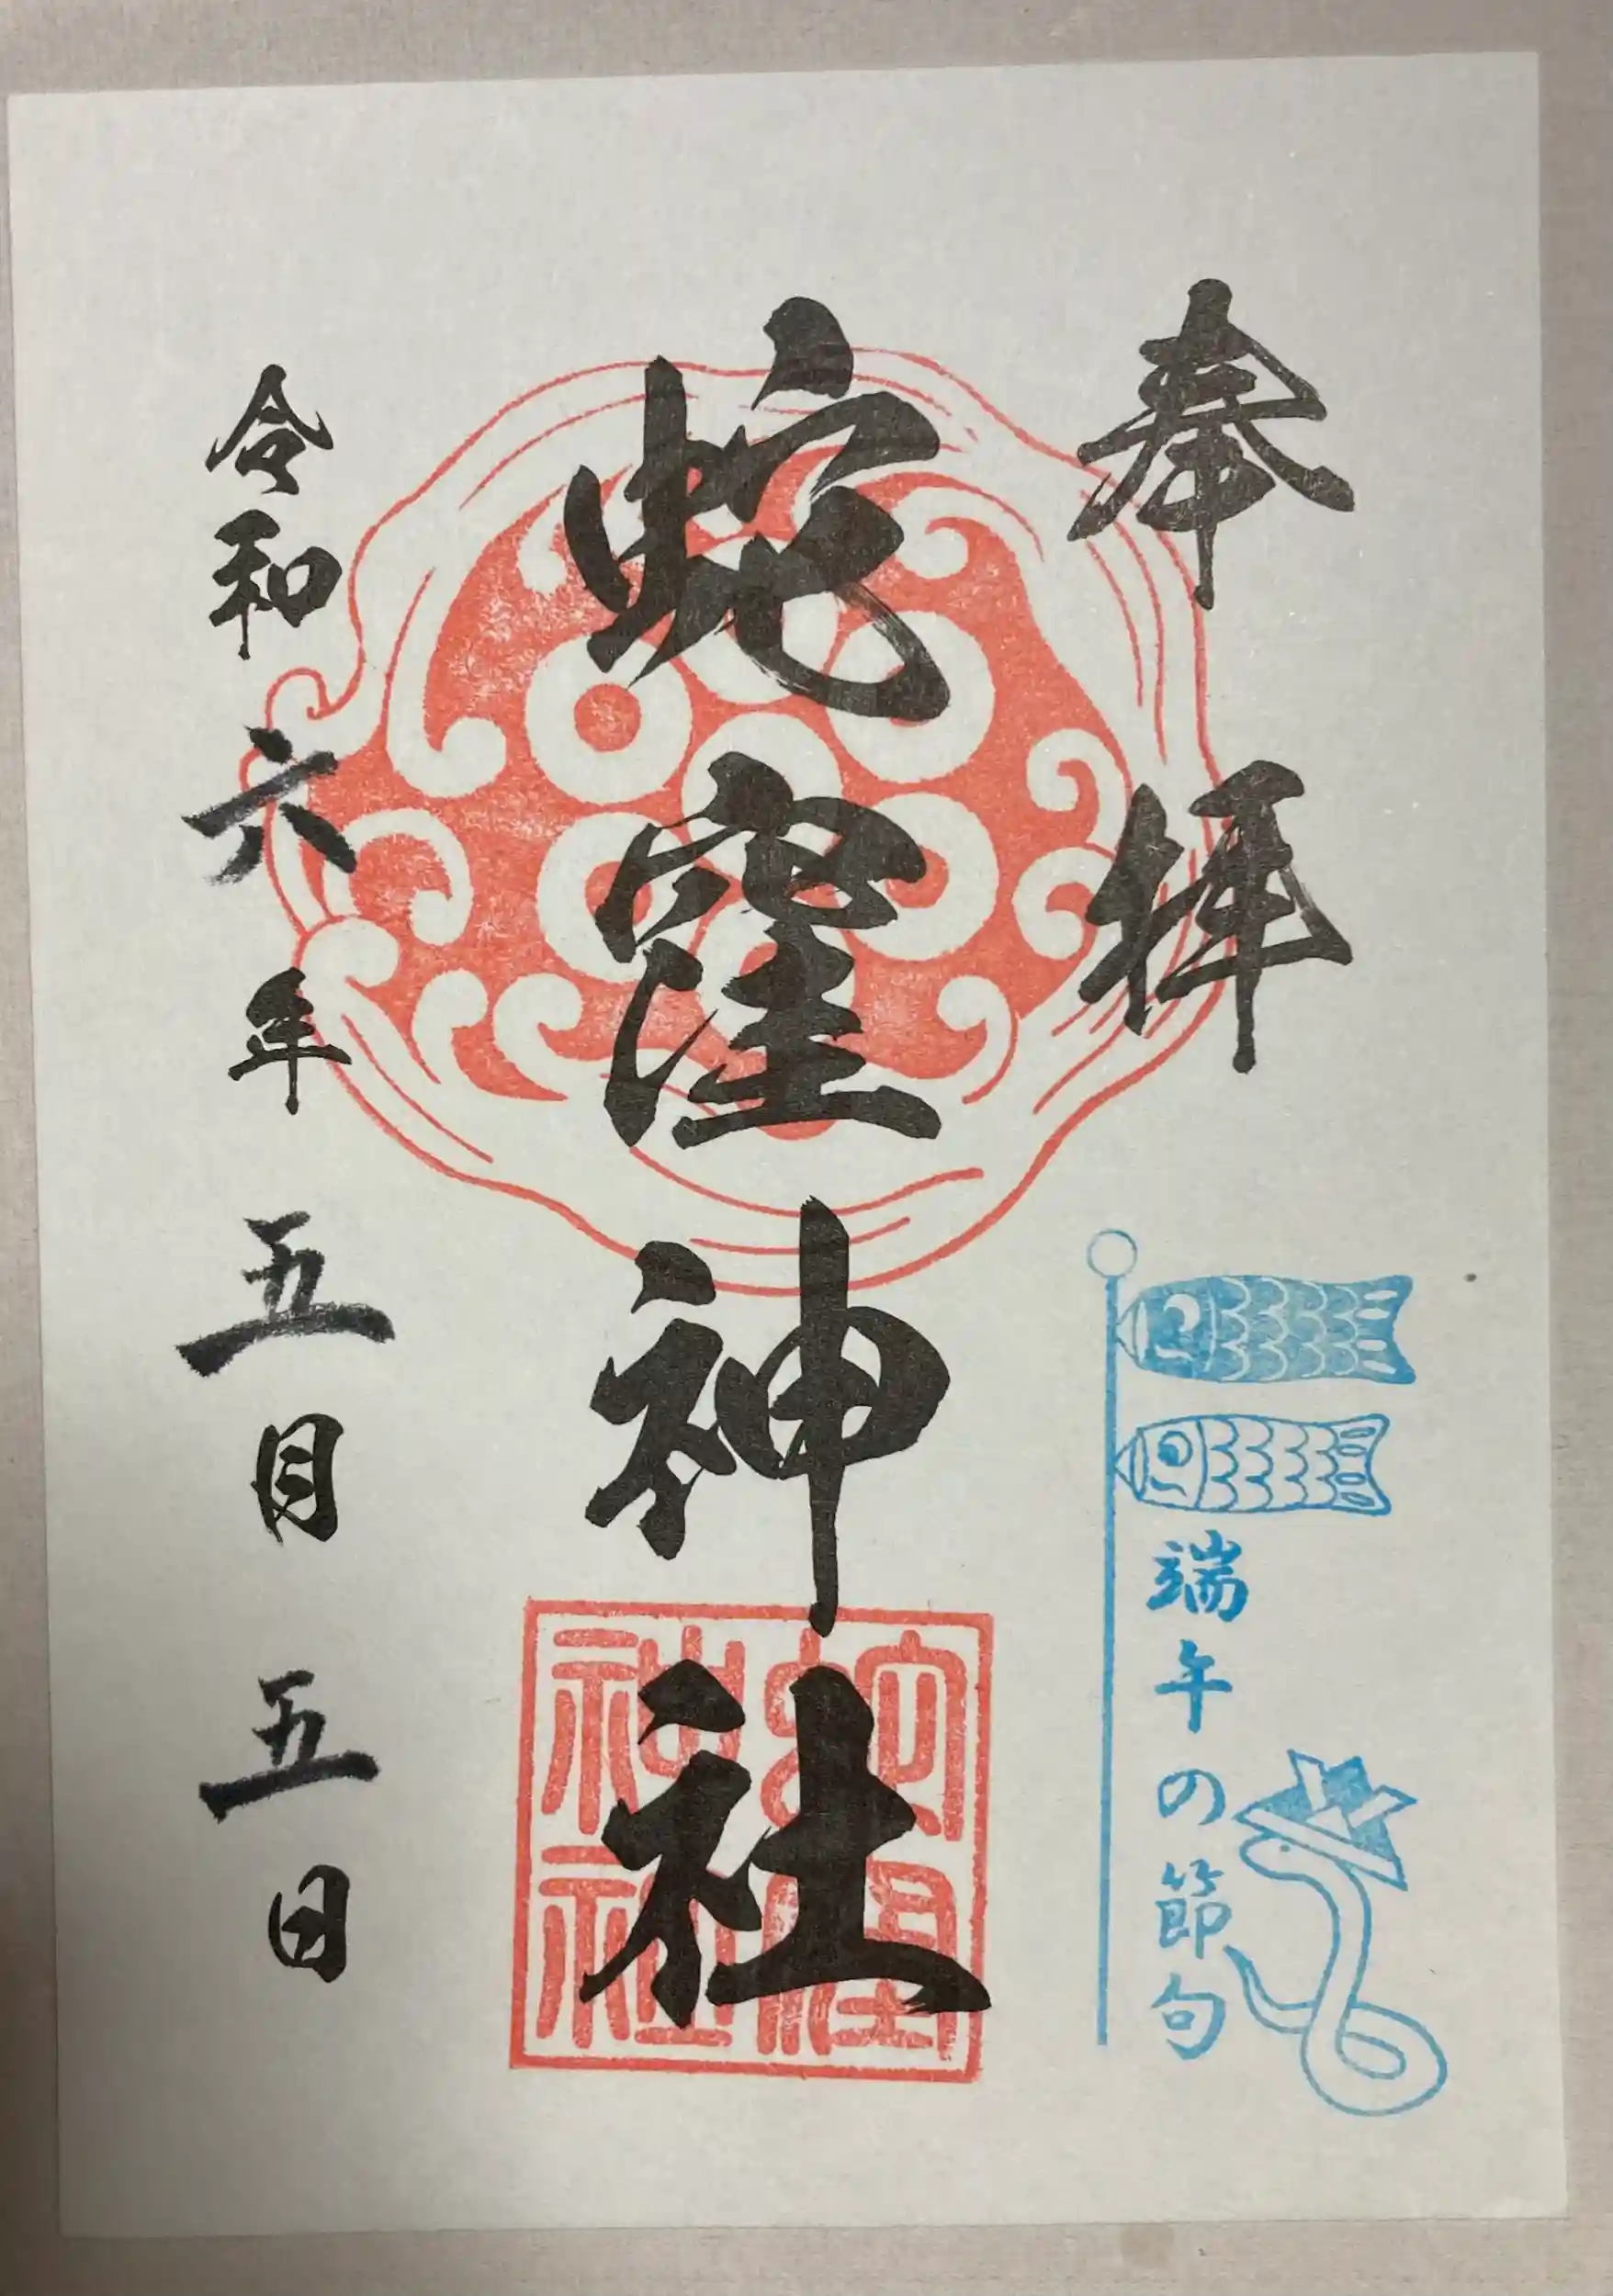 奉拝
端午の節句
蛇窪神社
蛇窪神社
令和六年五月五日